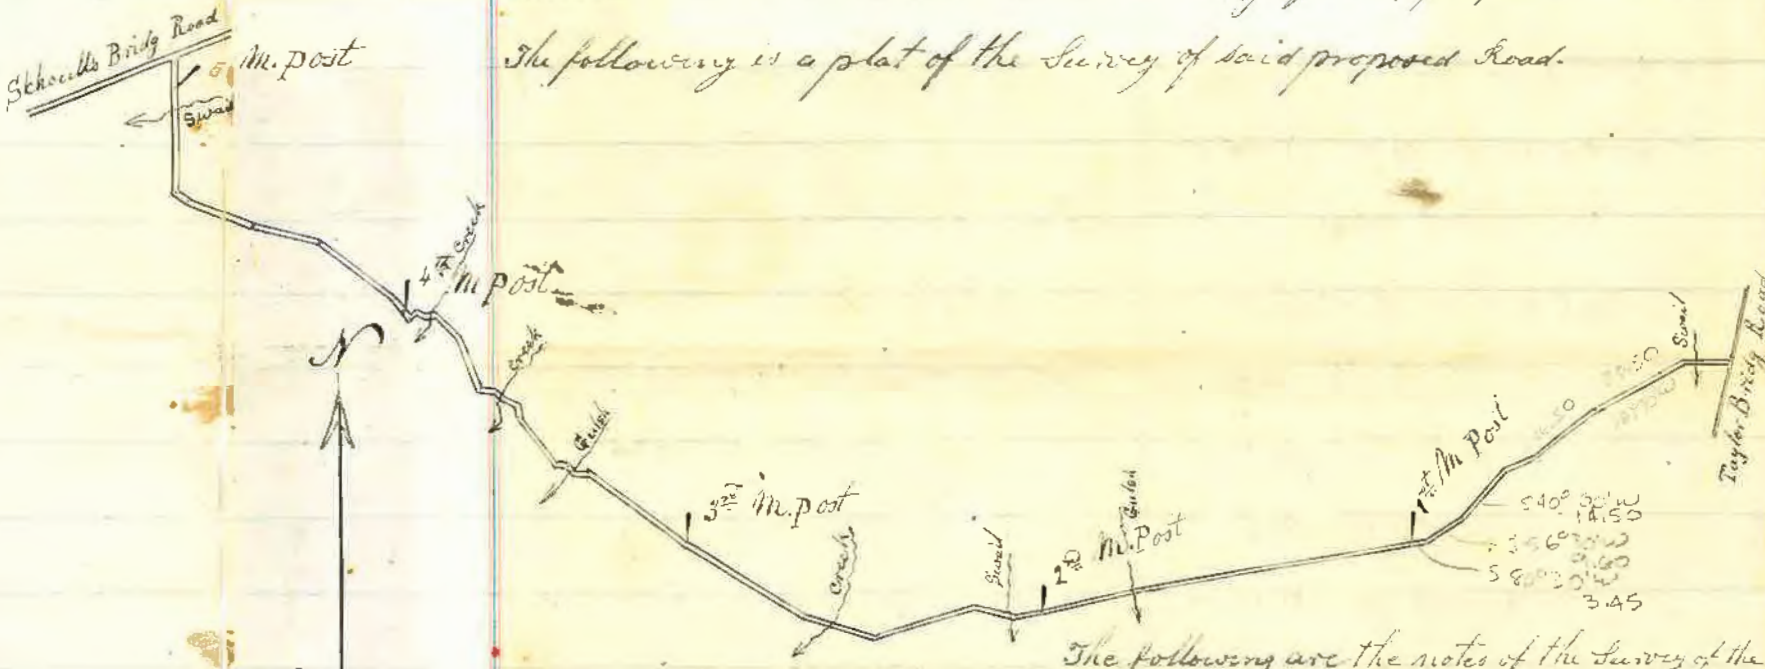 Skhoulls Bridg Road
5 M. post
The following is a plat of the Survey of said proposed Road.
Swail
4th M post
Creek
N
Creek
Gulch
3rd M. post
Creek
Swail
2nd M. Post
Gulch
1st M Post
Swail
Taylor Bridg Road
S40° 30'W
14.50
S56°30'W
9.60
S80°30'W
3.45
The following are the notes of the Survey of the